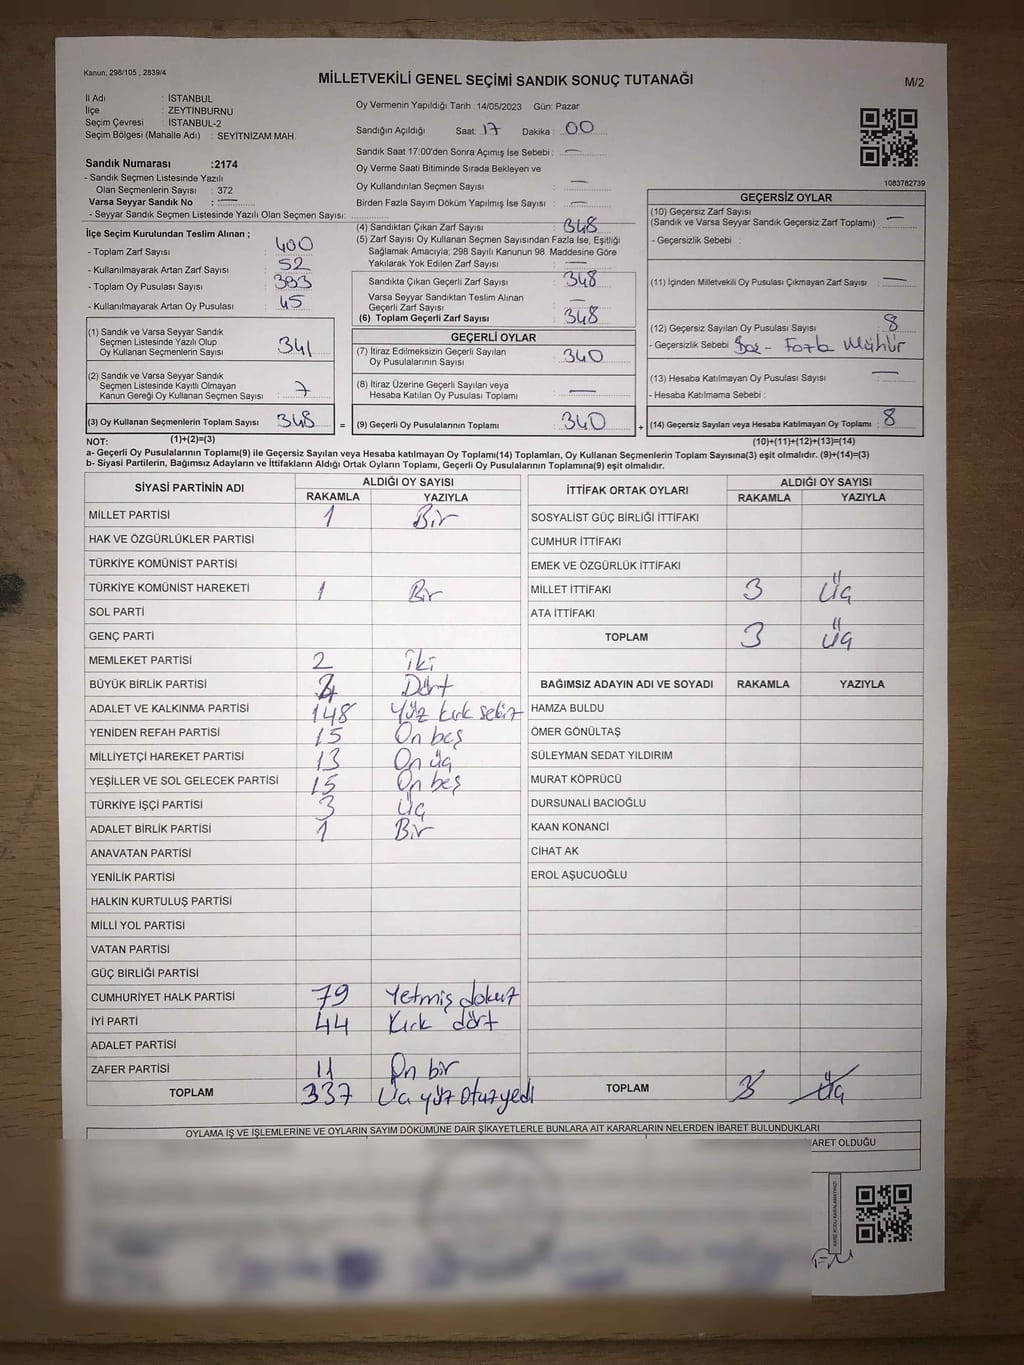 Kanun: 298/105 , 2839/4
MİLLETVEKİLİ GENEL SEÇİMİ SANDIK SONUÇ TUTANAĞI
M/2
İl Adı : İSTANBUL
İlçe : ZEYTİNBURNU
Seçim Çevresi : İSTANBUL-2
Seçim Bölgesi (Mahalle Adı) : SEYİTNİZAM MAH.
Sandık Numarası :2174
- Sandık Seçmen Listesinde Yazılı
Olan Seçmenlerin Sayısı : 372
Varsa Seyyar Sandık No : —
- Seyyar Sandık Seçmen Listesinde Yazılı Olan Seçmen Sayısı:
Oy Vermenin Yapıldığı Tarih : 14/05/2023 Gün: Pazar
Sandığın Açıldığı Saat: 17 Dakika : 00
Sandık Saat 17:00'den Sonra Açımış İse Sebebi : —
Oy Verme Saati Bitiminde Sırada Bekleyen ve
Oy Kullandırılan Seçmen Sayısı : —
Birden Fazla Sayım Döküm Yapılmış İse Sayısı : —
1083782739
İlçe Seçim Kurulundan Teslim Alınan ;
- Toplam Zarf Sayısı : 400
- Kullanılmayarak Artan Zarf Sayısı : 52
- Toplam Oy Pusulası Sayısı : 393
- Kullanılmayarak Artan Oy Pusulası : 45
(1) Sandık ve Varsa Seyyar Sandık
Seçmen Listesinde Yazılı Olup
Oy Kullanan Seçmenlerin Sayısı : 341
(2) Sandık ve Varsa Seyyar Sandık
Seçmen Listesinde Kayıtlı Olmayan
Kanun Gereği Oy Kullanan Seçmen Sayısı : 7
(3) Oy Kullanan Seçmenlerin Toplam Sayısı : 348
(1)+(2)=(3)
(4) Sandıktan Çıkan Zarf Sayısı : 348
(5) Zarf Sayısı Oy Kullanan Seçmen Sayısından Fazla İse, Eşitliği
Sağlamak Amacıyla; 298 Sayılı Kanunun 98. Maddesine Göre
Yakılarak Yok Edilen Zarf Sayısı : —
Sandıkta Çıkan Geçerli Zarf Sayısı : 348
Varsa Seyyar Sandıktan Teslim Alınan
Geçerli Zarf Sayısı : —
(6) Toplam Geçerli Zarf Sayısı : 348
GEÇERLİ OYLAR
(7) İtiraz Edilmeksizin Geçerli Sayılan
Oy Pusulalarının Sayısı : 340
(8) İtiraz Üzerine Geçerli Sayılan veya
Hesaba Katılan Oy Pusulası Toplamı : —
= (9) Geçerli Oy Pusulalarının Toplamı : 340
GEÇERSİZ OYLAR
(10) Geçersiz Zarf Sayısı
(Sandık ve Varsa Seyyar Sandık Geçersiz Zarf Toplamı) : —
- Geçersizlik Sebebi :
(11) İçinden Milletvekili Oy Pusulası Çıkmayan Zarf Sayısı : —
(12) Geçersiz Sayılan Oy Pusulası Sayısı : 8
- Geçersizlik Sebebi : Boş - Fazla Mühür
(13) Hesaba Katılmayan Oy Pusulası Sayısı : —
- Hesaba Katılmama Sebebi :
+ (14) Geçersiz Sayılan veya Hesaba Katılmayan Oy Toplamı : 8
(10)+(11)+(12)+(13)=(14)
NOT:
a- Geçerli Oy Pusulalarının Toplamı(9) ile Geçersiz Sayılan veya Hesaba katılmayan Oy Toplamı(14) Toplamları, Oy Kullanan Seçmenlerin Toplam Sayısına(3) eşit olmalıdır. (9)+(14)=(3)
b- Siyasi Partilerin, Bağımsız Adayların ve İttifakların Aldığı Ortak Oyların Toplamı, Geçerli Oy Pusulalarının Toplamına(9) eşit olmalıdır.
SİYASİ PARTİNİN ADI ALDIĞI OY SAYISI
RAKAMLA YAZIYLA
MİLLET PARTİSİ 1 Bir
HAK VE ÖZGÜRLÜKLER PARTİSİ
TÜRKİYE KOMÜNİST PARTİSİ
TÜRKİYE KOMÜNİST HAREKETİ 1 Bir
SOL PARTİ
GENÇ PARTİ
MEMLEKET PARTİSİ 2 iki
BÜYÜK BİRLİK PARTİSİ 4 Dört
ADALET VE KALKINMA PARTİSİ 148 Yüz kırk sekiz
YENİDEN REFAH PARTİSİ 15 On beş
MİLLİYETÇİ HAREKET PARTİSİ 13 On üç
YEŞİLLER VE SOL GELECEK PARTİSİ 15 On beş
TÜRKİYE İŞÇİ PARTİSİ 3 Üç
ADALET BİRLİK PARTİSİ 1 Bir
ANAVATAN PARTİSİ
YENİLİK PARTİSİ
HALKIN KURTULUŞ PARTİSİ
MİLLİ YOL PARTİSİ
VATAN PARTİSİ
GÜÇ BİRLİĞİ PARTİSİ
CUMHURİYET HALK PARTİSİ 79 Yetmiş dokuz
İYİ PARTİ 44 Kırk dört
ADALET PARTİSİ
ZAFER PARTİSİ 11 On bir
TOPLAM 337 Üç yüz otuz yedi
İTTİFAK ORTAK OYLARI ALDIĞI OY SAYISI
RAKAMLA YAZIYLA
SOSYALİST GÜÇ BİRLİĞİ İTTİFAKI
CUMHUR İTTİFAKI
EMEK VE ÖZGÜRLÜK İTTİFAKI
MİLLET İTTİFAKI 3 Üç
ATA İTTİFAKI
TOPLAM 3 Üç
BAĞIMSIZ ADAYIN ADI VE SOYADI RAKAMLA YAZIYLA
HAMZA BULDU
ÖMER GÖNÜLTAŞ
SÜLEYMAN SEDAT YILDIRIM
MURAT KÖPRÜCÜ
DURSUNALİ BACIOĞLU
KAAN KONANCİ
CİHAT AK
EROL AŞUCUOĞLU
TOPLAM 3 Üç
OYLAMA İŞ VE İŞLEMLERİNE VE OYLARIN SAYIM DÖKÜMÜNE DAİR ŞİKAYETLERLE BUNLARA AİT KARARLARIN NELERDEN İBARET BULUNDUKLARI
ARET OLDUĞU